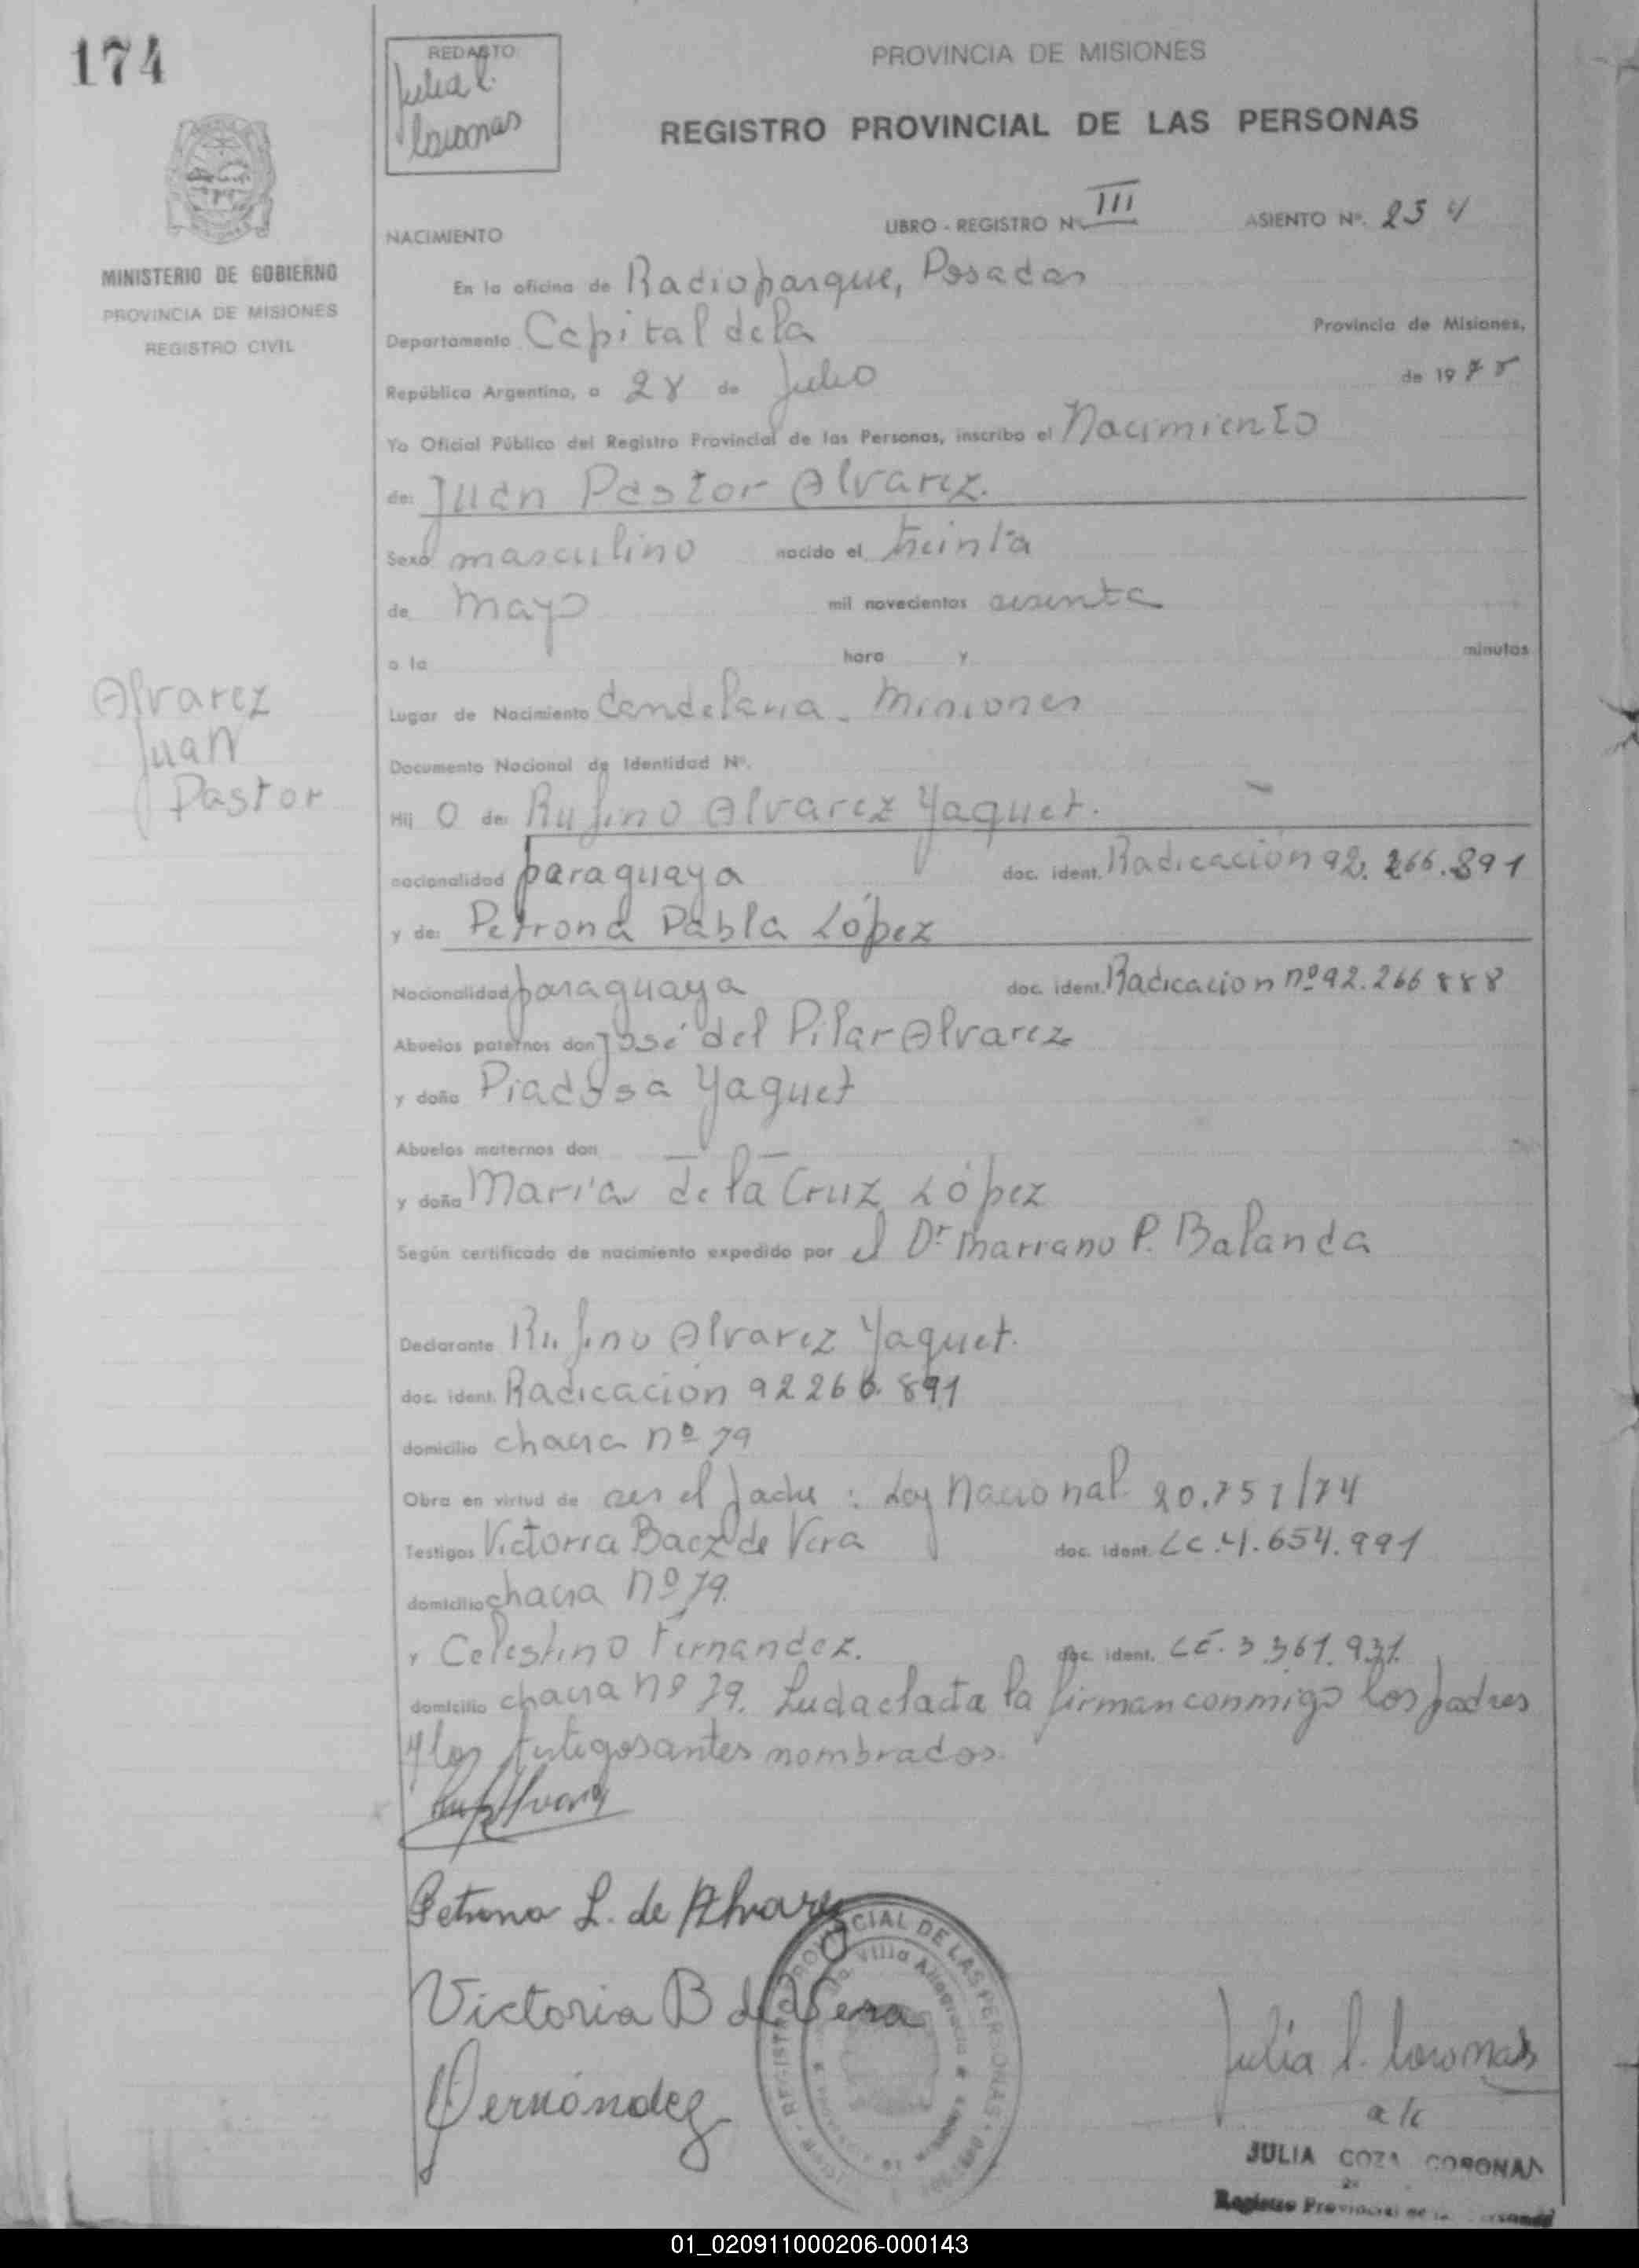 174
REDACTO
Julia C.
Coronas
PROVINCIA DE MISIONES
REGISTRO PROVINCIAL DE LAS PERSONAS
MINISTERIO DE GOBIERNO
PROVINCIA DE MISIONES
REGISTRO CIVIL
NACIMIENTO
LIBRO - REGISTRO Nº III
ASIENTO Nº. 234
En la oficina de Radioparque, Posadas
Departamento Capital de la Provincia de Misiones,
República Argentina, a 28 de Julio de 1975
Yo Oficial Público del Registro Provincial de las Personas, inscribo el Nacimiento
de: Juan Pastor Alvarez.
Sexo masculino nacido el treinta
de mayo mil novecientos sesenta
a la hora y minutos
Lugar de Nacimiento Candelaria - Misiones
Alvarez
Juan
Pastor
Documento Nacional de Identidad Nº.
Hij o de: Rufino Alvarez Yaquet.
nacionalidad paraguaya doc. ident. Radicación 92.266.891
y de: Petrona Pabla López
Nacionalidad paraguaya doc. ident. Radicacion nº 92.266 888
Abuelos paternos don José del Pilar Alvarez
y doña Piadosa Yaquet
Abuelos maternos don — —
y doña María de la Cruz López
Según certificado de nacimiento expedido por el Dr. Mariano P. Balanda
Declarante Rufino Alvarez Yaquet.
doc. ident. Radicación 92266.891
domicilio chacra nº 79
Obra en virtud de ser el padre : Ley Nacional 20.751/74
Testigos Victoria Baez de Vera doc. ident. LC.4.654.991
domicilio chacra nº 79.
y Celestino Fernandez. doc. ident. LE. 3.361.931.
domicilio chacra nº 79. Leuda el acta la firman conmigo los padres
y los testigos antes nombrados.
Petrona L. de Alvarez
Victoria B de Vera
Fernández
REGISTRO PROVINCIAL DE LAS PERSONAS
Villa
Julia C. Coronas
a/c
JULIA COZA CORONAS
Registro Provincial de las Personas
01_020911000206-000143